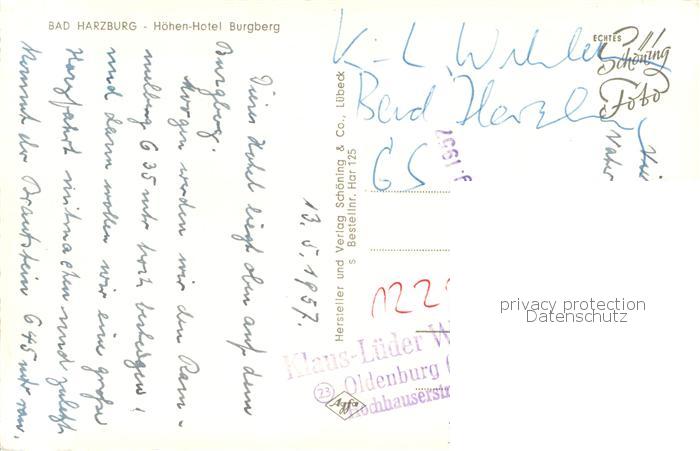 BAD HARZBURG - Höhen-Hotel Burgberg
13. 5. 1957.
Dies Hotel liegt oben auf dem
Burgberg.
Morgen werden wir den Ram-
melberg 635 mtr hoch besteigen,
und dann wollen wir eine große
Harzfahrt mitmachen und zuletzt
kommt der Brautstein 645 mtr ran.
Hersteller und Verlag Schöning & Co., Lübeck
S Bestellnr. Har 125
ECHTES
Schöning
Foto
K.-L.
Bad Harzburg
65
1957
122
Klaus-Lüder W
(23) Oldenburg (
Hochhauserstr
Agfa
privacy protection
Datenschutz